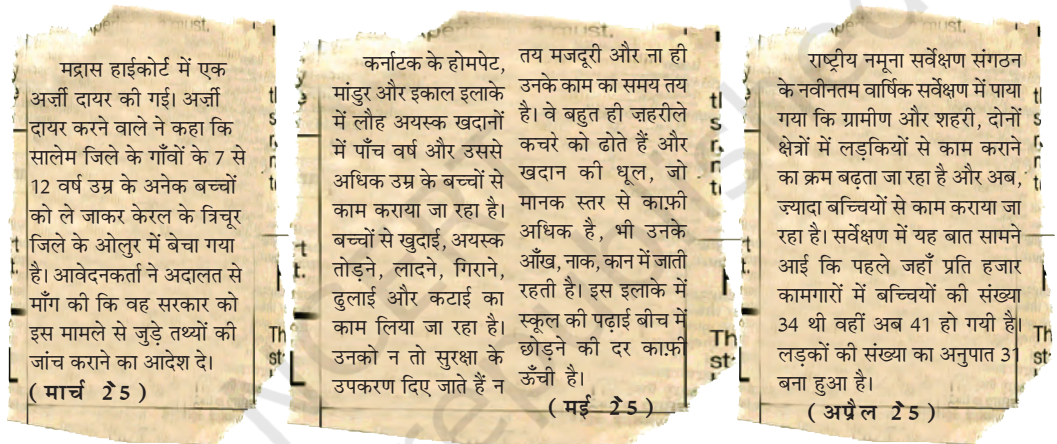 मद्रास हाईकोर्ट में एक
अर्ज़ी दायर की गई। अर्ज़ी
दायर करने वाले ने कहा कि
सालेम जिले के गाँवों के 7 से
12 वर्ष उम्र के अनेक बच्चों
को ले जाकर केरल के त्रिचूर
जिले के ओलुर में बेचा गया
है। आवेदनकर्ता ने अदालत से
माँग की कि वह सरकार को
इस मामले से जुड़े तथ्यों की
जांच कराने का आदेश दे।
( मार्च
कर्नाटक के होमपेट,
मांडुर और इकाल इलाके
में लौह अयस्क खदानों
में पाँच वर्ष और उससे
अधिक उम्र के बच्चों से
काम कराया जा रहा है।
बच्चों से खुदाई, अयस्क
तोड़ने, लादने, गिराने,
ढुलाई और कटाई का
काम लिया जा रहा है।
उनको न तो सुरक्षा के
उपकरण दिए जाते हैं न
तय मजदूरी और ना ही
उनके काम का समय तय
है। वे बहुत ही ज़हरीले
कचरे को ढोते हैं और
खदान की धूल, जो
मानक स्तर से काफ़ी
अधिक है, भी उनके
आँख, नाक, कान में जाती
रहती है। इस इलाके में
स्कूल की पढ़ाई बीच में
छोड़ने की दर काफ़ी
ऊँची है।
( मई
राष्ट्रीय नमूना सर्वेक्षण संगठन
के नवीनतम वार्षिक सर्वेक्षण में पाया
गया कि ग्रामीण और शहरी, दोनों
क्षेत्रों में लड़कियों से काम कराने
का क्रम बढ़ता जा रहा है और अब,
ज्यादा बच्चियों से काम कराया जा
रहा है। सर्वेक्षण में यह बात सामने
आई कि पहले जहाँ प्रति हजार
कामगारों में बच्चियों की संख्या
34 थी वहीं अब 41 हो गयी है।
लड़कों की संख्या का अनुपात 31
बना हुआ है।
( अप्रैल